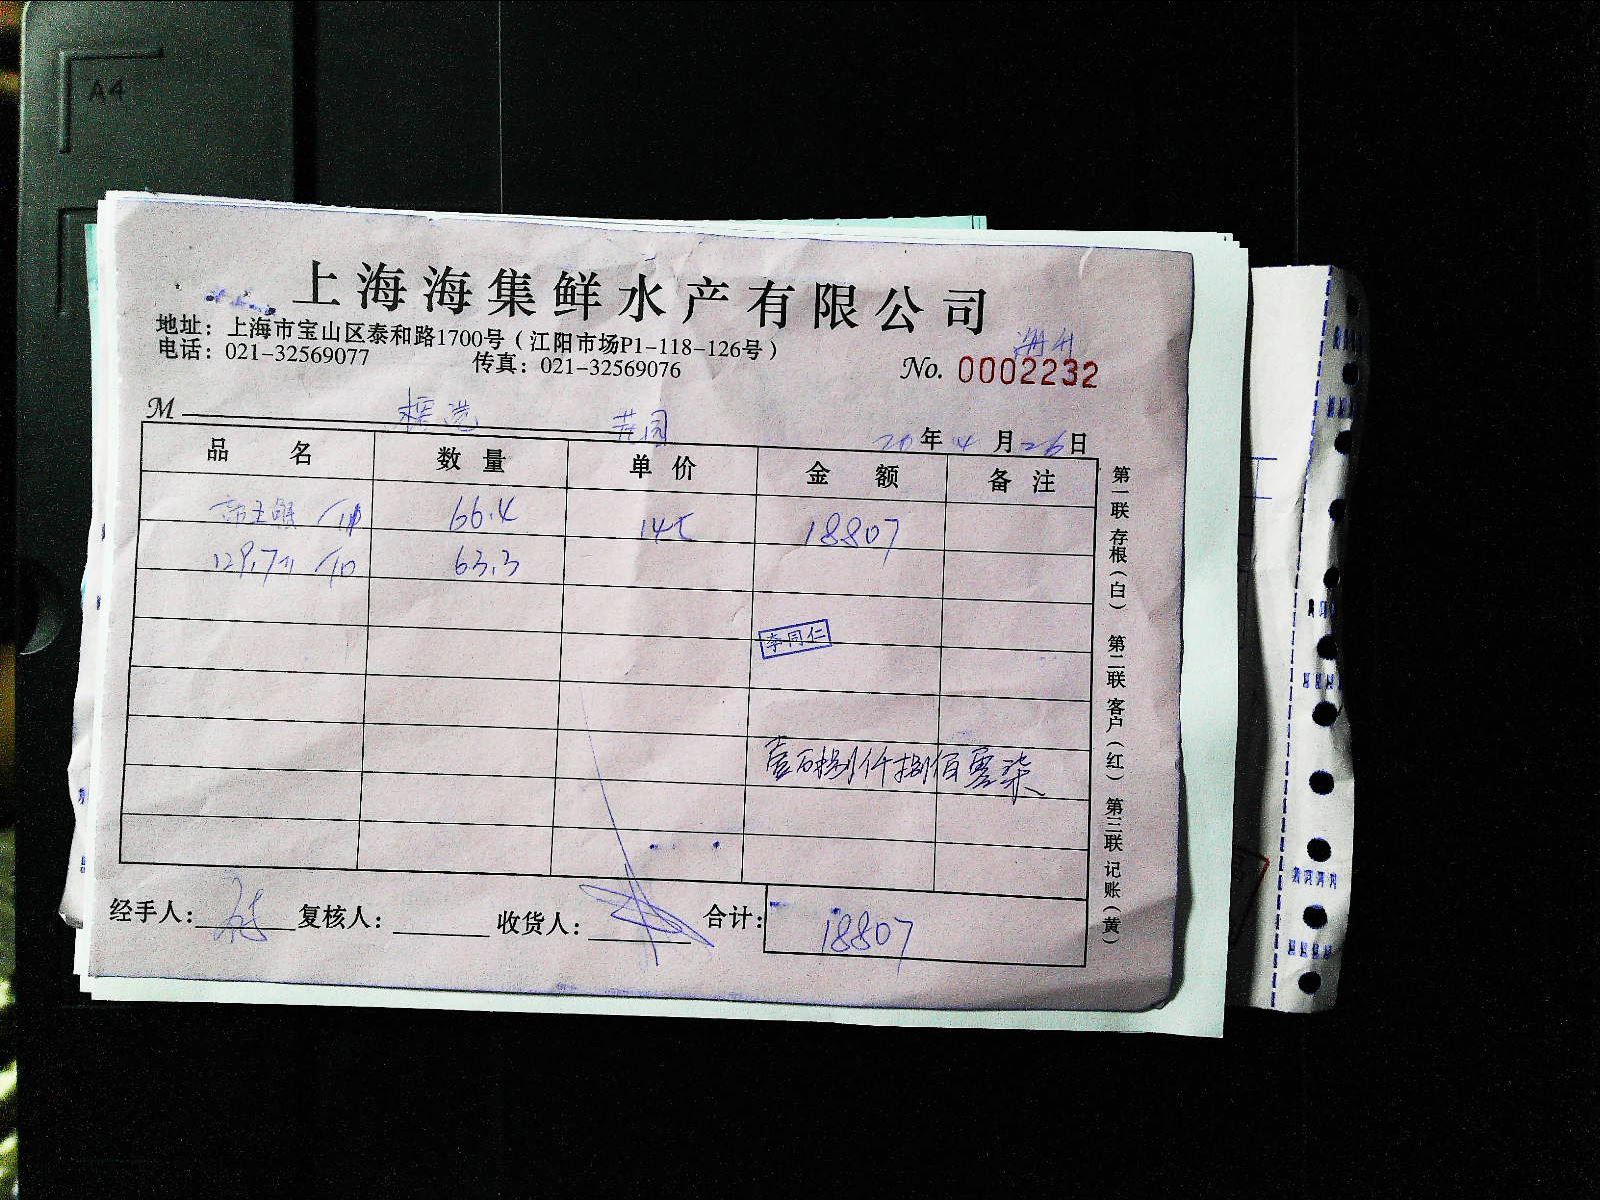 A4
上海海集鲜水产有限公司
地址：上海市宝山区泰和路1700号（江阳市场P1-118-126号）
电话：021-32569077 传真：021-32569076
No. 0002232
M
20年4月26日
品名 数量 单价 金额 备注
66.4 145 18807
129.7斤 63.3
李同仁
壹万捌仟捌佰零柒
经手人： 复核人： 收货人： 合计： 18807
第一联存根（白） 第二联客户（红） 第三联记账（黄）